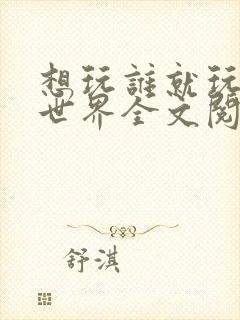 想玩誰就玩
世界全文閱
舒淇